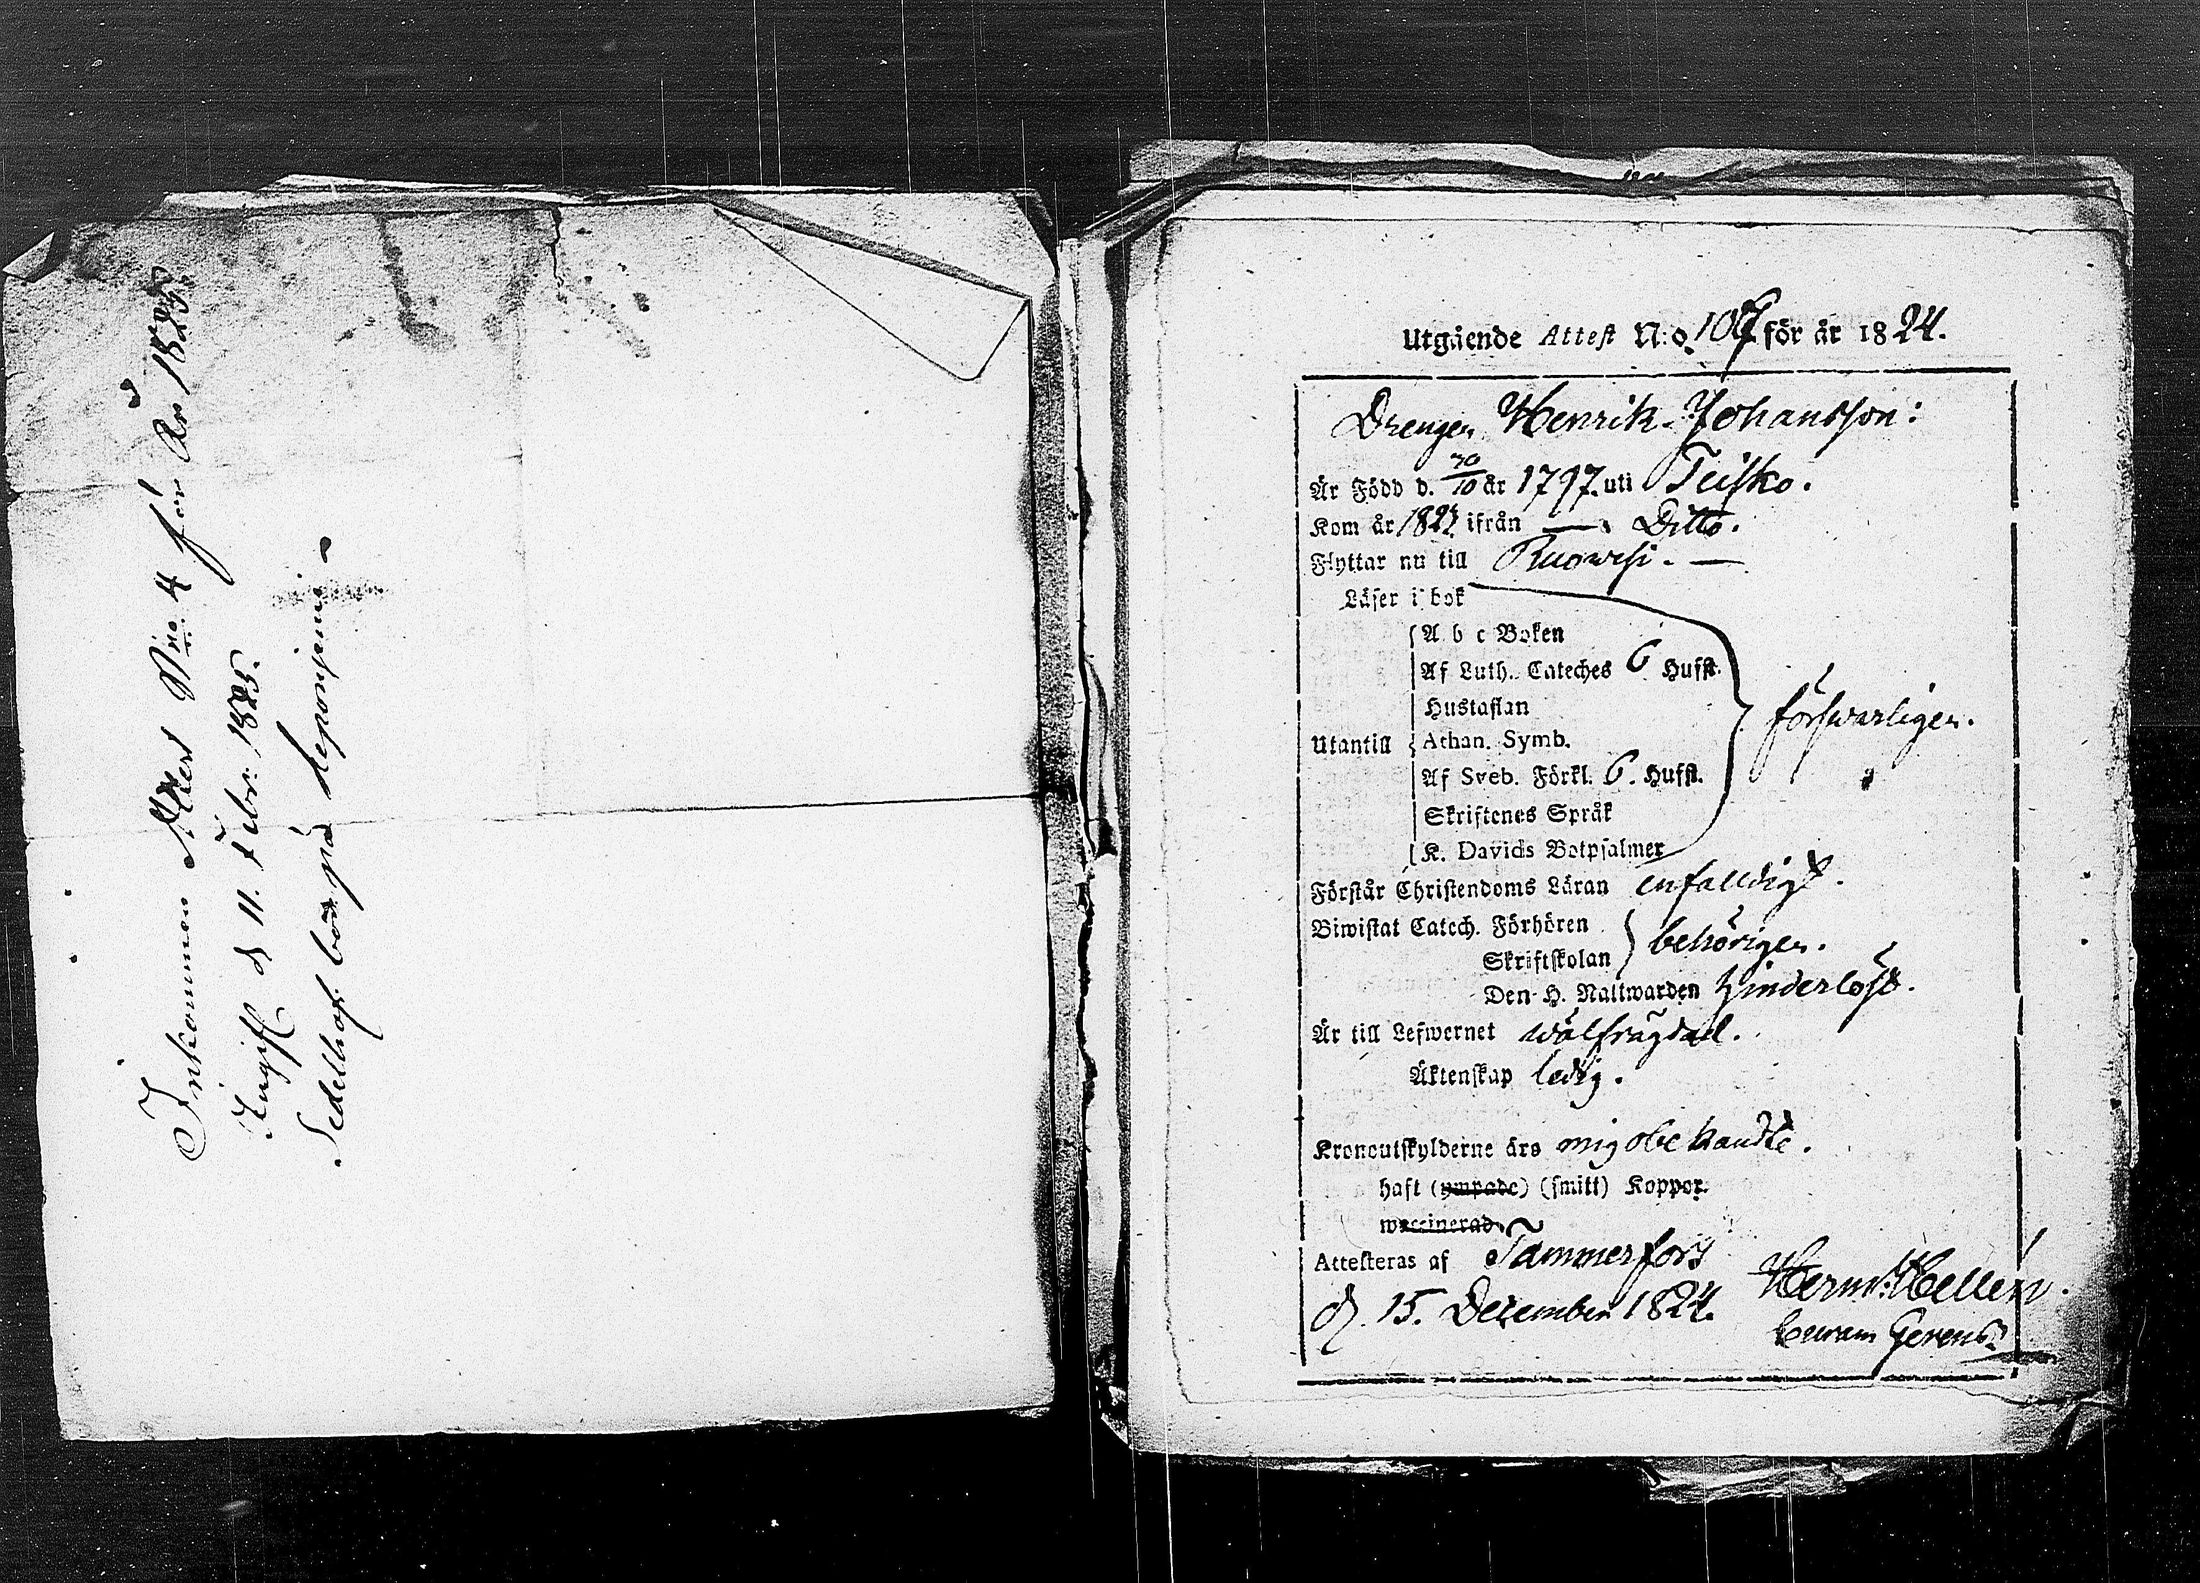 Inkommen Attest N:o 4 för År 1825.
Ingift d 11. Febr: 1825.
Sedelhaf. bör på deponjemi
Utgående Attest N:o 107 för år 1824.
Drengen Henrik Johansson:
Är Född d. 30/10 år 1797. uti Teisko.
Kom år 1824 ifrån — Ditto.
Flyttar nu till Ruowesi. —
Läser i bok
A b c Boken
Af Luth. Cateches 6 Hufst.
Hustaflan
Utantill Athan. Symb.
Af Sveb. Förkl. 6. Hufst.
Skriftenes Språk
K. Davids Botpsalmer
förswarligen.
Förstår Christendoms Läran enfalldigt.
Biwistat Catech. Förhören
Skriftskolan
behörigen.
Den H. Nattwarden hinderlöst.
Är till Lefwernet wälfrägdad.
Äktenskap ledig.
Kronoutskylderne äro mig obekandte.
haft (ympade) (smitt) Koppor.
waccinerad
Attesteras af Tammerfors
d. 15. December 1824.
Herm: Hellén.
Curam Gerens.